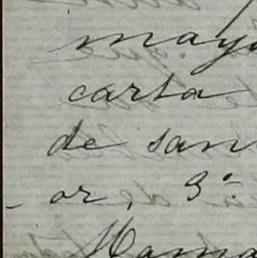 may
carta
de san
- or, 3º
Mama